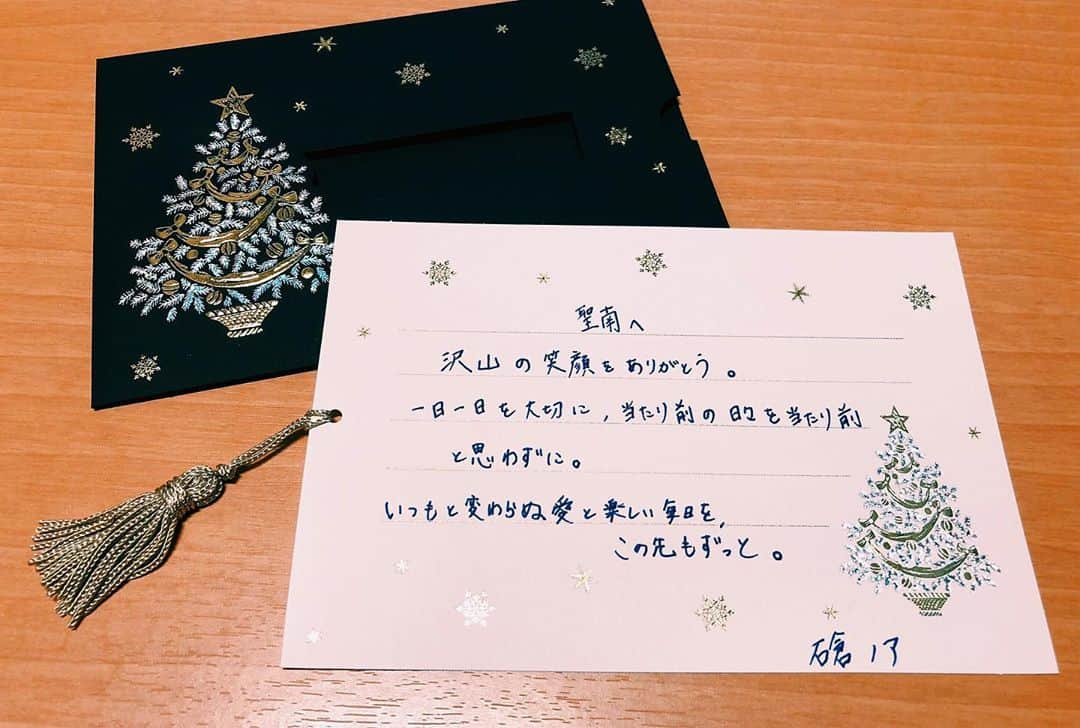 聖南へ
沢山の笑顔をありがとう。
一日一日を大切に、当たり前の日々を当たり前
と思わずに。
いつもと変わらぬ愛と楽しい毎日を、
この先もずっと。
碒 ノア